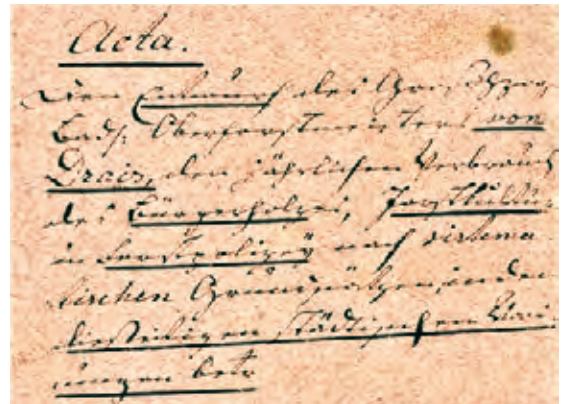 Acta.
Den Entwurf des Großherzog
Bads. Oberforstmeisters von
Drais, den jährlichen Verbrauch
des Bürgerholzes, Forstkultur
in Forstpolizey nach sistema
tischen Grundsätzen in den
diesseitigen städtischen Wal
ungen betr